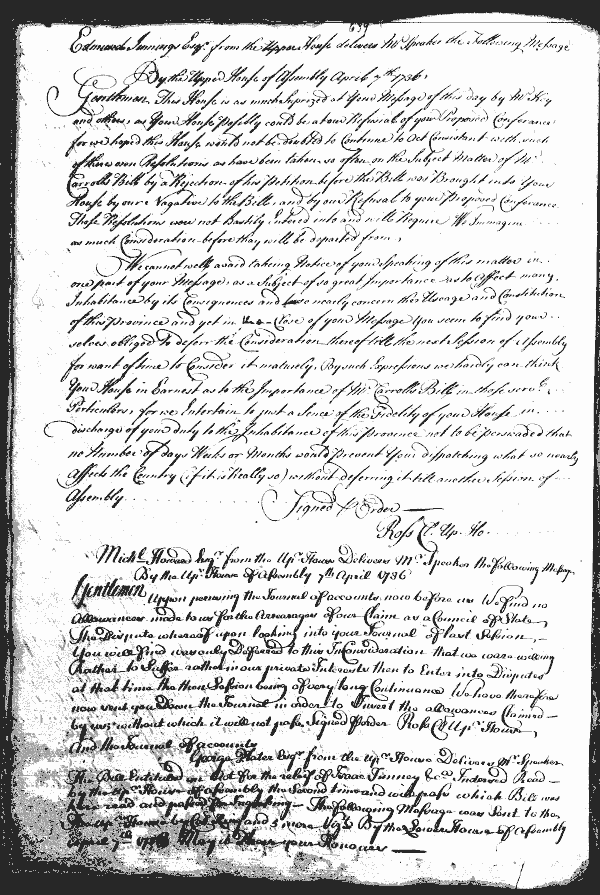 639
Edmund Jennings Esqr. from the Upper House delivers Mr. Speaker the Following Message
By the Upper House of Assembly April 7th 1736.
Gentlemen This House is as much Suprized at Your Message of this day by Mr. Key
and others, as Your House Possibly could be at our Refusial of your Proposed Conferance
for we hoped this House would not be doubted to Continue to Act Consistant with such
of their own Resolutions as have been taken so often on the Subject Matter of Mr.
Carrolls Bill by a Rejection of his Petition before the Bill was Brought into Your
House by our Negative to the Bill, and by our Refusal to your Proposed Conferance
These Resolutions were not Hastily Entered into and will Require We Immagin
as much Consideration before they will be departed from,
We cannot well avoid taking Notice of your Speaking of this matter in
one part of your Message, as a Subject of so great Importance as to Affect many
Inhabitants by its Consequences and so nearly concern the Useage and Constitution
of this Province and yet in the Close of your Message You seem to find your
selves obliged to deferr the Consideration thereof till the next Session of Assembly
for want of time to Consider it maturely, By such Expressions we hardly can think
Your House in Earnest as to the Importance of Mr. Carrolls Bill in those
Particulars, for we Entertain to just a Sence of the Fidelity of your House in
discharge of your duty to the Inhabitants of this Province not to be perswaded that
no Number of days Weeks or Months would prevent Your dispatching what so nearly
Affects the Country (if it is Really so) without deferring it till another Session of
Assembly
Signed P Order
Ross C. Up. Ho.
Michl. Howard Esqr. from the Upr. House Delivers Mr. Speaker the following Message
By the Upr. House of Assembly 7th April 1736
Gentlemen Upon perusing the Journal of accounts now before us We find no
Allowances made to us for the Arrearages of our Claim as a Council of State,
The Dispute whereof upon looking into your Journal of last Session,
You will find was only Deferred to this in Consideration that we were willing
Rather to Suffer rather in our private Interests then to Enter into Disputes
at that time the then Session being of very long Continuance We have therefore
now sent you Down the Journal in order to Insert the allowances Claimed
by us, without which it will not pass. Signed P order Ross Cl Upr. House
And the Journal of accounts
George Plater Esqr. from the Upr. House Delivers Mr. Speaker
The Bill Entituled an Act for the relief of Isaac Tinney &ca. Indorsed Read
by the Upr. House of Assembly the Second time and will pass which Bill was
here read and passed for Engrossing The following Message was Sent to the
Upr. House by Col. and 5 more Vizt. By the Lower House of Assembly
April 7th 1736 May it Please your Honours